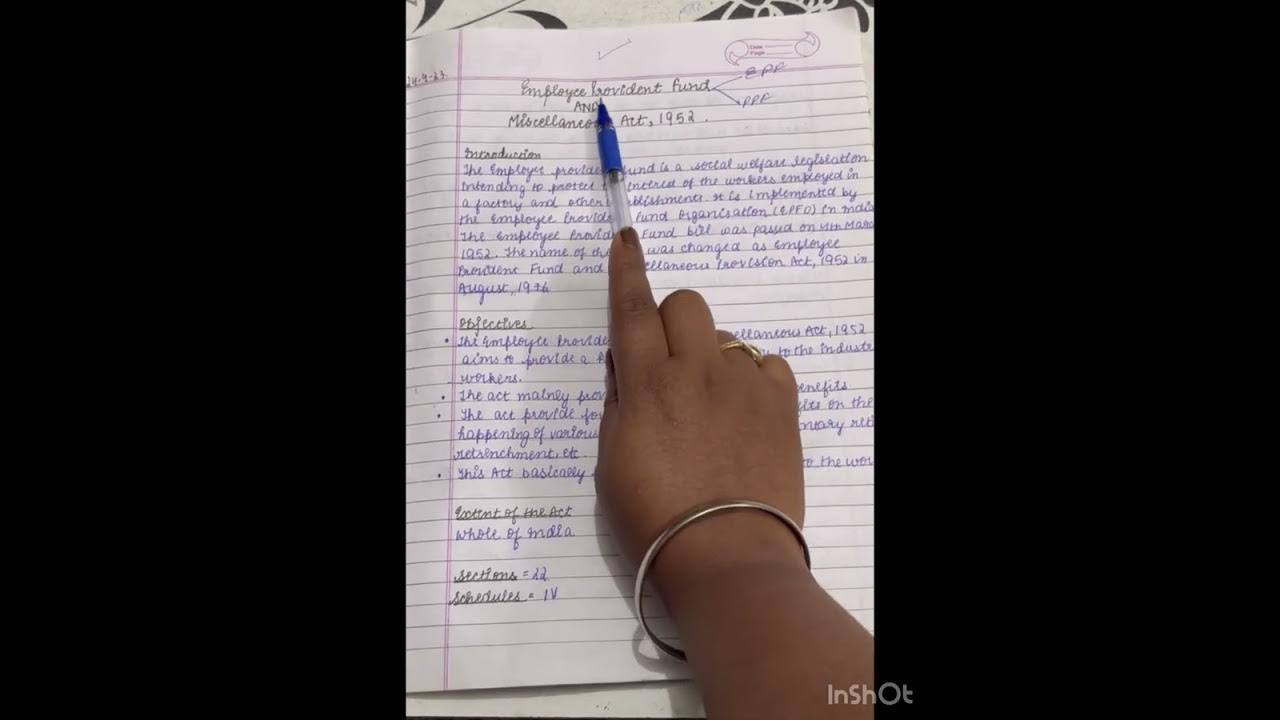 Date
Page
24-9-23.
Employee Provident Fund
EPF
PPF
AND
Miscellaneous Act, 1952.
Introduction
The Employee provident Fund is a social welfare legislation
intending to protect interest of the workers employed in
a factory and other establishments. It is implemented by
the Employee Provident Fund Organisation (EPFO) in India
The Employee Provident Fund bill was passed on 4th Mar
1952. The name of the was changed as Employee
Provident Fund and Miscellaneous Provision Act, 1952 in
August, 1976
Objectives
• The Employee Provide ellaneous Act, 1952
aims to provide a to the industr
workers.
• The act mainly prov enefits
• The act provide fo fits on the
happening of various ntary reti
retrenchment, etc
• This Act basically to the wor
Extent of the Act
Whole of India
Sections = 22
Schedules = IV
InShOt